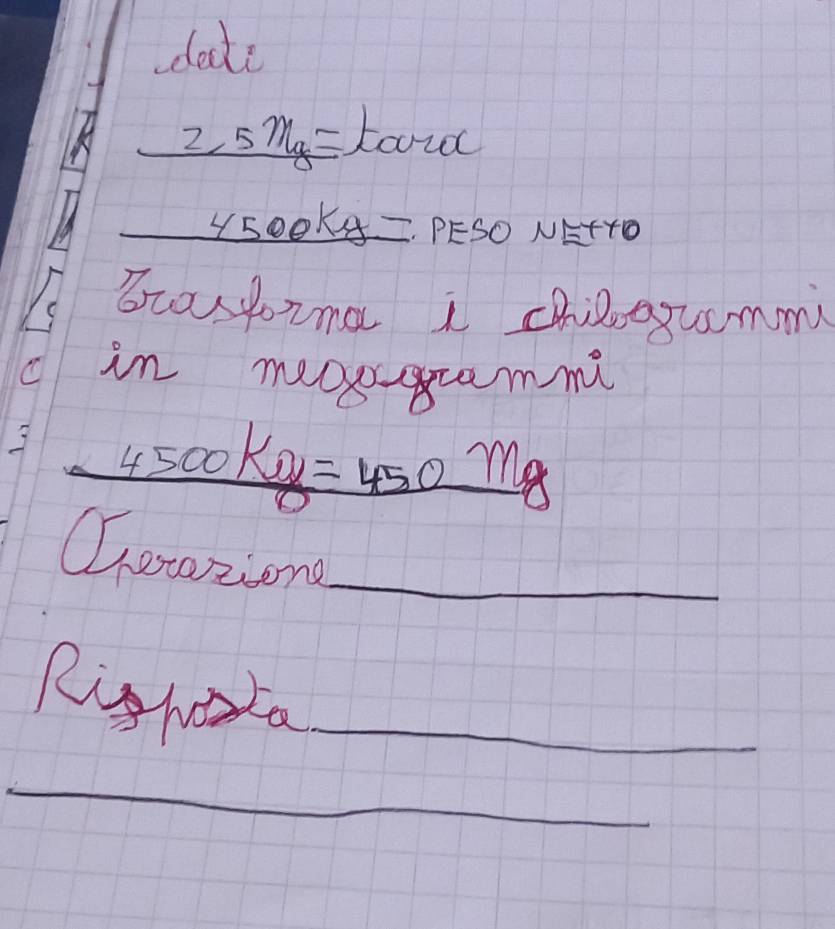 dati
2,5 Mg = tara
4500 Kg = PESO NETTO
Trasforma i chilogrammi
in megagrammi
4500 Kg = 450 Mg
Operazione
Risposta